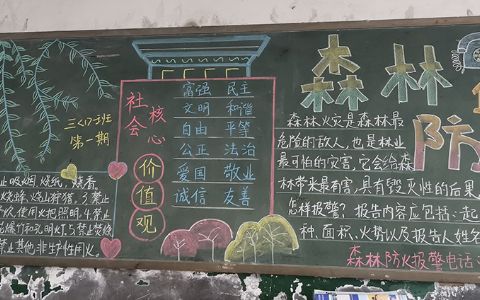 三〈1〉班
第一期
止吸烟、烧纸、烧香、
禁止其他非生产性用火。
社会
核心
价值观
富强 民主
文明 和谐
自由 平等
公正 法治
爱国 敬业
诚信 友善
森林
防
森林火灾是森林最
危险的敌人,也是林业
最可怕的灾害,它会给森
林带来最有害,具有毁灭性的后果
怎样报警?报告内容应包括:起
种、面积、火势以及报告人姓名
森林防火报警电话: